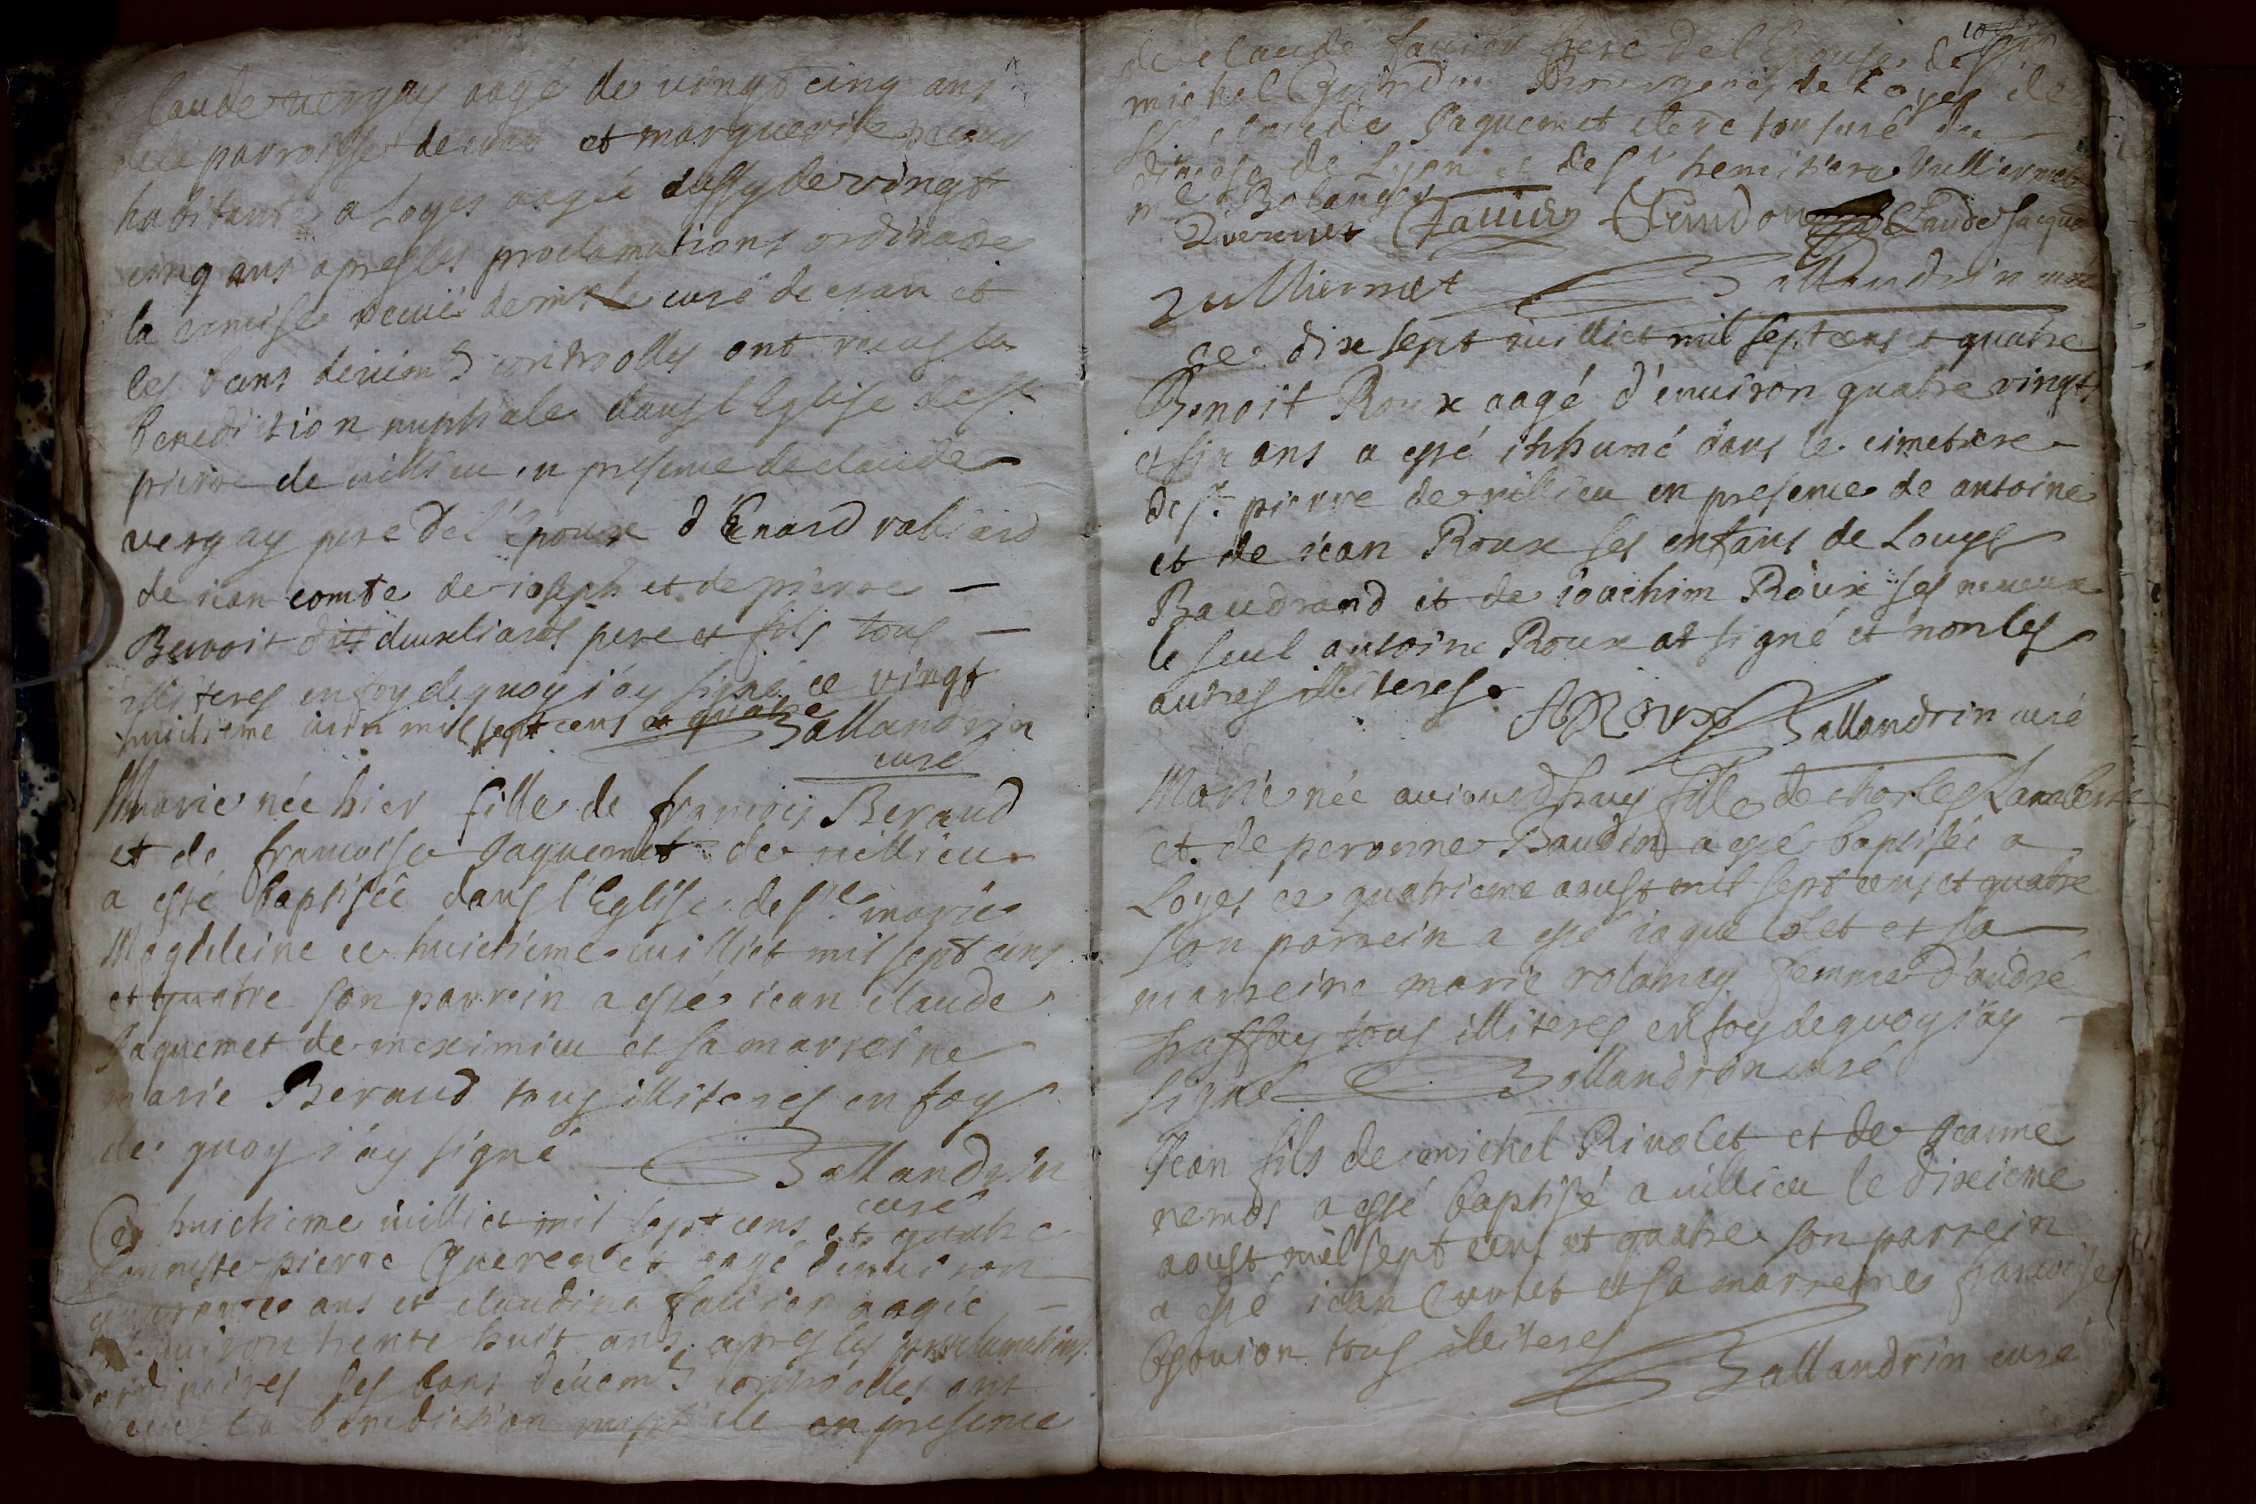 Claude vergay aagé de vingt cinq ans
de la parroisse de cran et marguerite
habitante a Loyes aagée aussy de vingt
cinq ans apres les proclamations ordinaire
la remise recüe de mr le curé de cran et
les bans deüem̃t controolles ont receus la
benediction nuptiale dans l'Eglise de st
pierre de uillieu en presence de claude
vergay pere de l'époux d'Enard rabliard
de iean comte de ioseph et de pierre
Benoit dits deuxliards pere et fils tous
illiteres en foy de quoy i'ay signé ce vingt
huictieme iuin mil sept cens et quatre Ballandrin
curé
Marie née hier fille de francois Beraud
et de francoise Jaquemet de uillieu
a esté baptisée dans l'Eglise de ste marie
Magdeleine ce huictieme iuilliet mil sept cens
et quatre son parrein a esté iean claude
Jaquemet de meximieu et sa marreine
marie Beraud tous illiteres en foy
de quoy i'ay signé Ballandrin
curé
Ce huictieme iuilliet mil sept cens et quatre
pierre Guerenet aagé d'enuiron
ans et claudine fauier aagée
d'enuiron trente huit ans apres les proclamations
ordinaires les bans deüem̃t controolles ont
receus la benediction nuptiale en presence
de claude fauier frere de l'Epouse de
michel Gandon Bourgeois de Loyes de
claude Jaquemet clerc tonsuré du
diocese de Lyon et de sr Vulliermet
Fauier Gandon Claude Jaque
Vulliermet Ballandrin curé
Ce dix sept iuilliet mil sept cens et quatre
Benoit Roux aagé d'enuiron quatre vingt
et six ans a esté inhumé dans le cimetiere
de st pierre de uillieu en presence de antoine
et de iean Roux ses enfans de Louys
Baudrand et de ioachim Roux ses neueux
le seul antoine Roux at signé et non les
autres illiteres.
A Roux Ballandrin curé
Marie née auiourdhuy fille de charles
et de peronne Baudin a esté baptisée a
Loyes ce quatrieme aoust mil sept cens et quatre
son parrein a esté iaque Colet et sa
marreine marie rolamay femme d'andré
tous illiteres en foy de quoy i'ay
signé Ballandrin curé
Jean fils de michel Riuolet et de Jeanne
remos a esté baptisé a uillieu le dixieme
aoust mil sept cens et quatre son parrein
a esté iean et sa marreine francoise
tous illiteres
Ballandrin curé